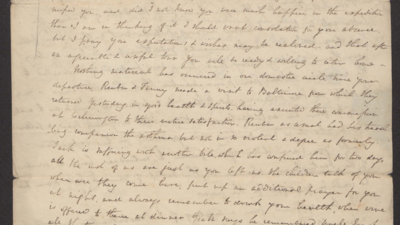 wished you, and did I not know you were much happier in the expedition
than I are in thinking of it I should want consolation for your absence
but I pray your expectations & wishes may be realized and that after
an agreeable & useful tour you will be ready & willing to return home —
Nothing material has occurred in our domestic circle since your
departure Reuben & Fanny made a visit to Baltimore from which they
returned yesterday in good health & spirits, having executed their
at Washington to their entire satisfaction. Reuben as usual had his
long companion the asthma but not in so violent a degree as formerly
Jack is suffering with another bile which has confined him for two days
all the rest of us are just as you left us. the children talk of you
when ever they come here, put up an additional prayer for you
at night, and always remember to drink your health, when wine
is offered to them at dinner. begs to be remembered